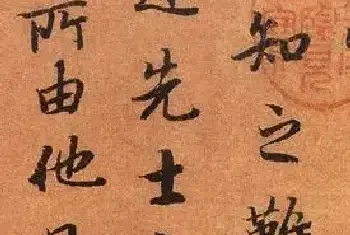 知之難
先士
所由他